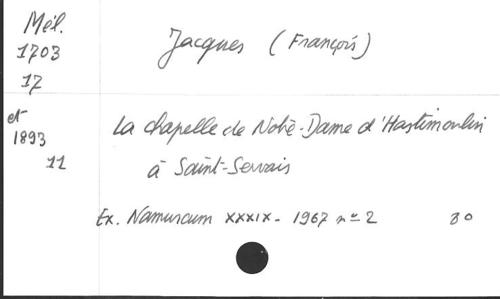 Mél.
1703
17
et
1893
11
Jacques (François)
La chapelle de Notre-Dame d'Hastimoulin
à Saint-Servais
Ex. Namurcum XXXIX - 1967 n° 2 30